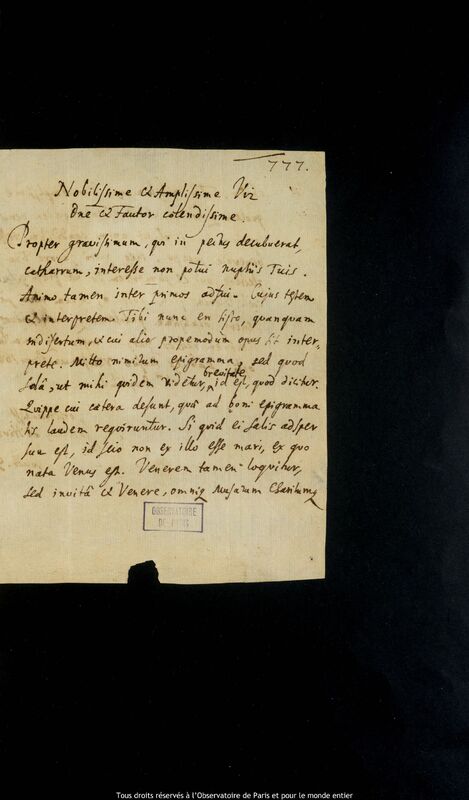 777.
Nobilissime & Amplissime Vir
Dne & Fautor colendissime.
Propter gravissimum, qui in pectus decubuerat,
catharrum, interesse non potui nuptiis Tuis.
Animo tamen inter primos adfui. Cujus testem
& interpretem Tibi nunc en sisto, quanquam
indisertum, & cui alio propemodum opus sit inter-
prete. Mitto nimirum epigramma, sed quod
solâ, ut mihi quidem videtur, brevitate id est, quod dicitur.
Quippe cui cætera desunt, quæ ad boni epigramma
tis laudem requiruntur. Si quid ei salis adsper
sum est, id scio non ex illo esse mari, ex quo
nata Venus est. Venerem tamen loquitur,
sed invitâ & Venere, omniq Musarum Charitumq
OBSERVATOIRE
DE PARIS
Tous droits réservés à l'Observatoire de Paris et pour le monde entier